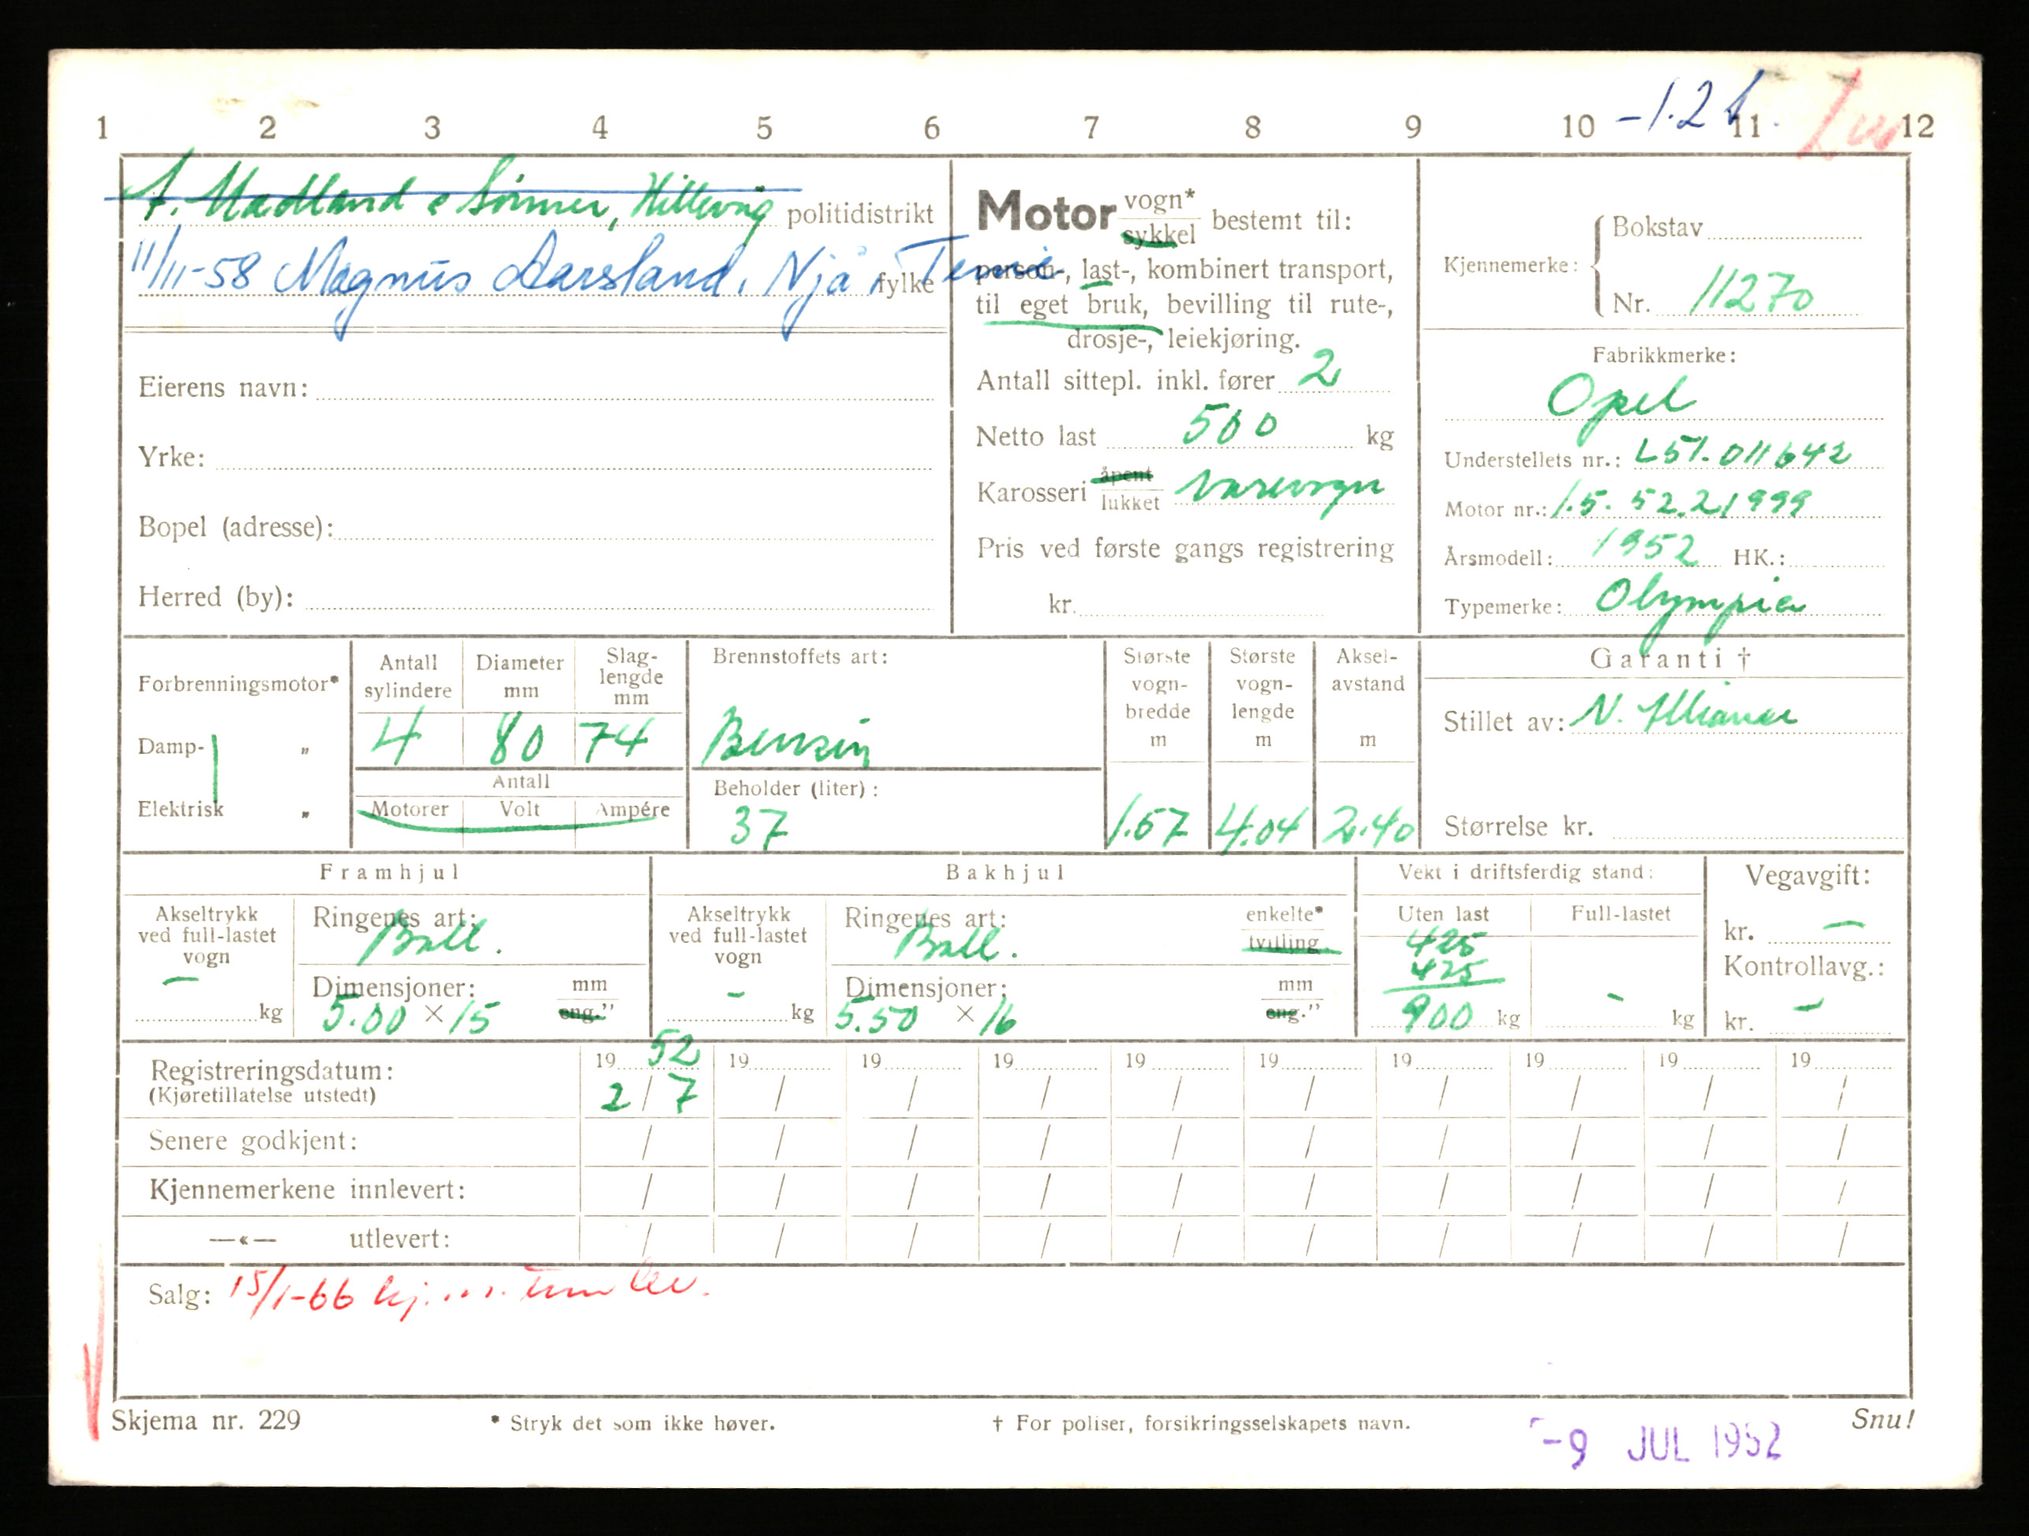 1 2 3 4 5 6 7 8 9 10 -1.2 11 12
A. Madland & Sønner, Hillevåg politidistrikt
11/11-58 Magnus Aarsland, Njå, Time fylke
Eierens navn:
Yrke:
Bopel (adresse):
Herred (by):
Motor vogn* sykkel bestemt til:
person-, last-, kombinert transport,
til eget bruk, bevilling til rute-,
drosje-, leiekjøring.
Antall sittepl. inkl. fører 2
Netto last 500 kg
Karosseri åpent lukket varevogn
Pris ved første gangs registrering
kr.
Kjennemerke: Bokstav
Nr. 11270
Fabrikkmerke:
Opel
Understellets nr.: L51.011642
Motor nr.: 1.5. 52.21999
Årsmodell: 1952 HK.:
Typemerke: Olympia
Forbrenningsmotor*
Damp- „
Elektrisk „
Antall sylindere Diameter mm Slag-lengde mm
4 80 74
Antall
Motorer Volt Ampére
Brennstoffets art:
Bensin
Beholder (liter):
37
Største vogn-bredde m
1.57
Største vogn-lengde m
4.04
Aksel-avstand m
2.40
Garanti †
Stillet av: N. Alliance
Størrelse kr.
Framhjul
Akseltrykk ved full-lastet vogn
- kg
Ringenes art:
Ball.
Dimensjoner: mm eng."
5.00 × 15
Bakhjul
Akseltrykk ved full-lastet vogn
- kg
Ringenes art: enkelte* tvilling
Ball.
Dimensjoner: mm eng."
5.50 × 16
Vekt i driftsferdig stand:
Uten last Full-lastet
425
425
900 kg - kg
Vegavgift:
kr. -
Kontrollavg.:
kr. -
Registreringsdatum: 19 52 19 19 19 19 19 19 19 19 19
(Kjøretillatelse utstedt) 2/7 / / / / / / / / /
Senere godkjent: / / / / / / / / / /
Kjennemerkene innlevert: / / / / / / / / / /
—«— utlevert: / / / / / / / / / /
Salg: 15/1-66 kj.
Skjema nr. 229 * Stryk det som ikke høver. † For poliser, forsikringsselskapets navn. Snu!
-9 JUL 1952